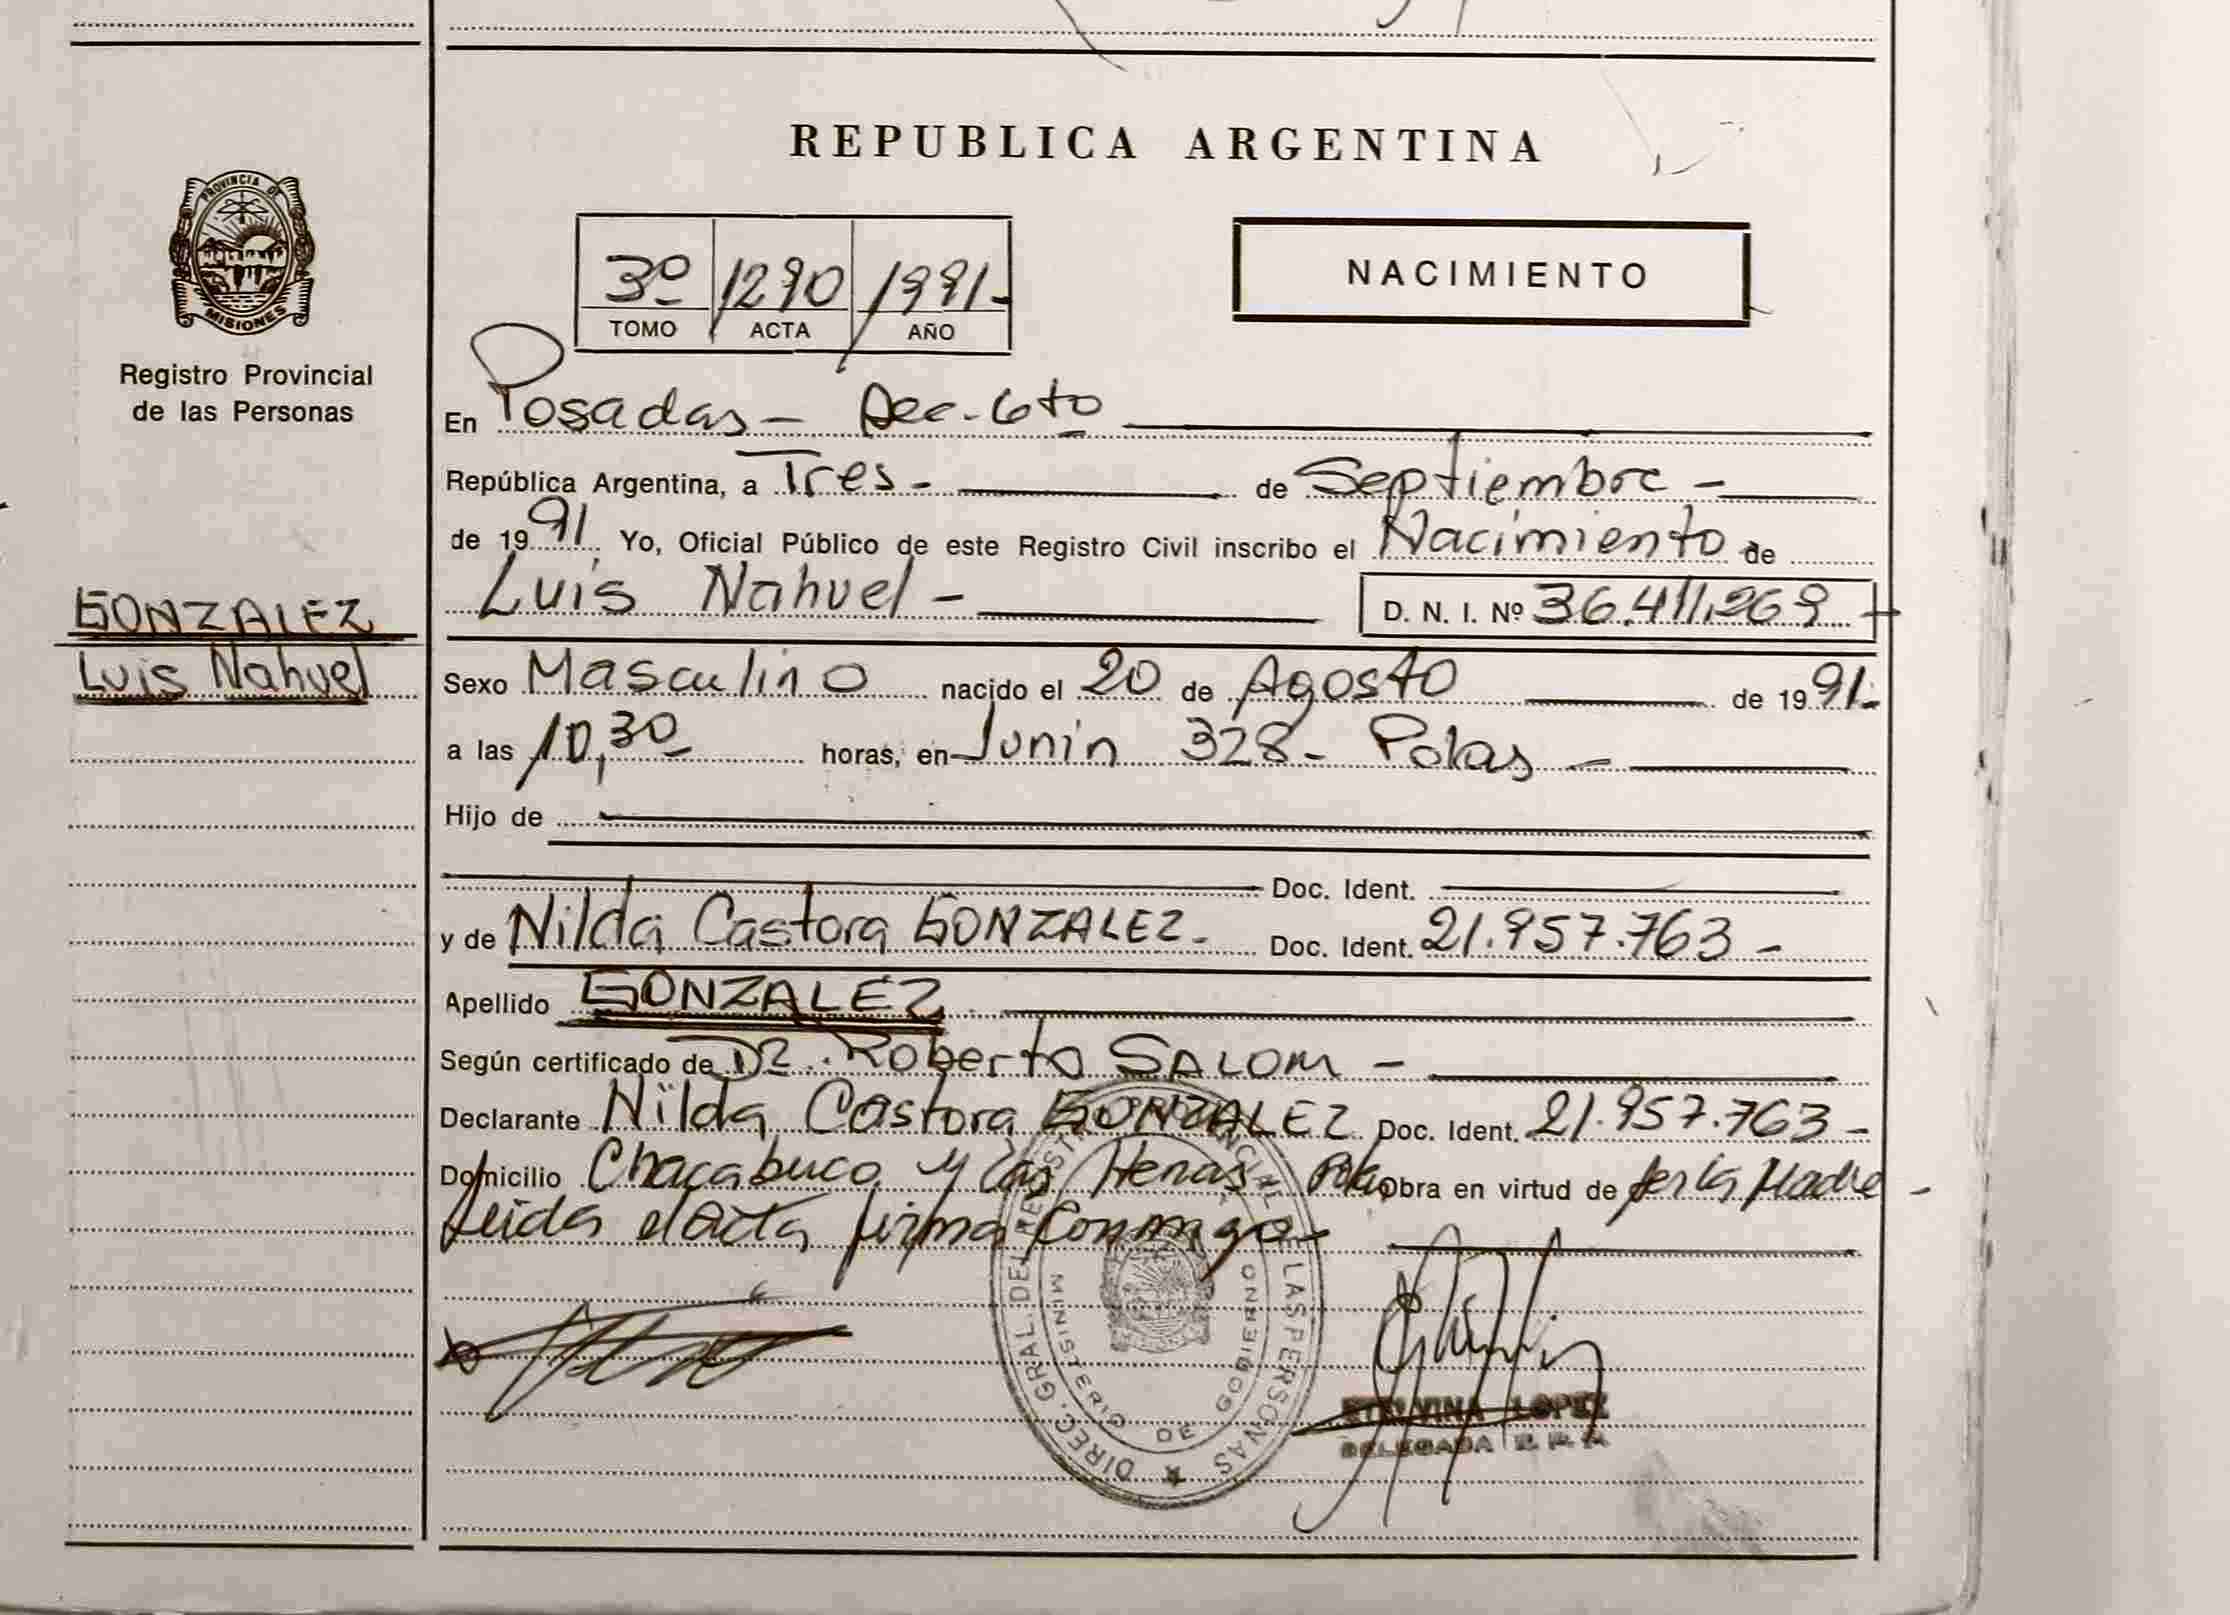 REPUBLICA ARGENTINA
PROVINCIA DE
MISIONES
Registro Provincial
de las Personas
3º 1290 1991-
TOMO ACTA AÑO
NACIMIENTO
En Posadas - Sec. 6to
República Argentina, a Tres - de Septiembre -
de 1991. Yo, Oficial Público de este Registro Civil inscribo el Nacimiento de
Luis Nahuel - D. N. I. Nº 36.411.269 -
GONZALEZ
Luis Nahuel
Sexo Masculino nacido el 20 de Agosto de 1991.-
a las 10,30 horas, en Junin 328 - Pdas -
Hijo de
Doc. Ident.
y de Nilda Castora GONZALEZ - Doc. Ident. 21.957.763 -
Apellido GONZALEZ
Según certificado de Dr. Roberto SALOM -
Declarante Nilda Castora GONZALEZ Doc. Ident. 21.957.763 -
Domicilio Chacabuco y Las Heras - Pdas Obra en virtud de ser la Madre -
Leida el Acta firma Conmigo -
DIREC. GRAL. DEL REGISTRO PROVINCIAL DE LAS PERSONAS
MINISTERIO DE GOBIERNO
LOPEZ
DELEGADA